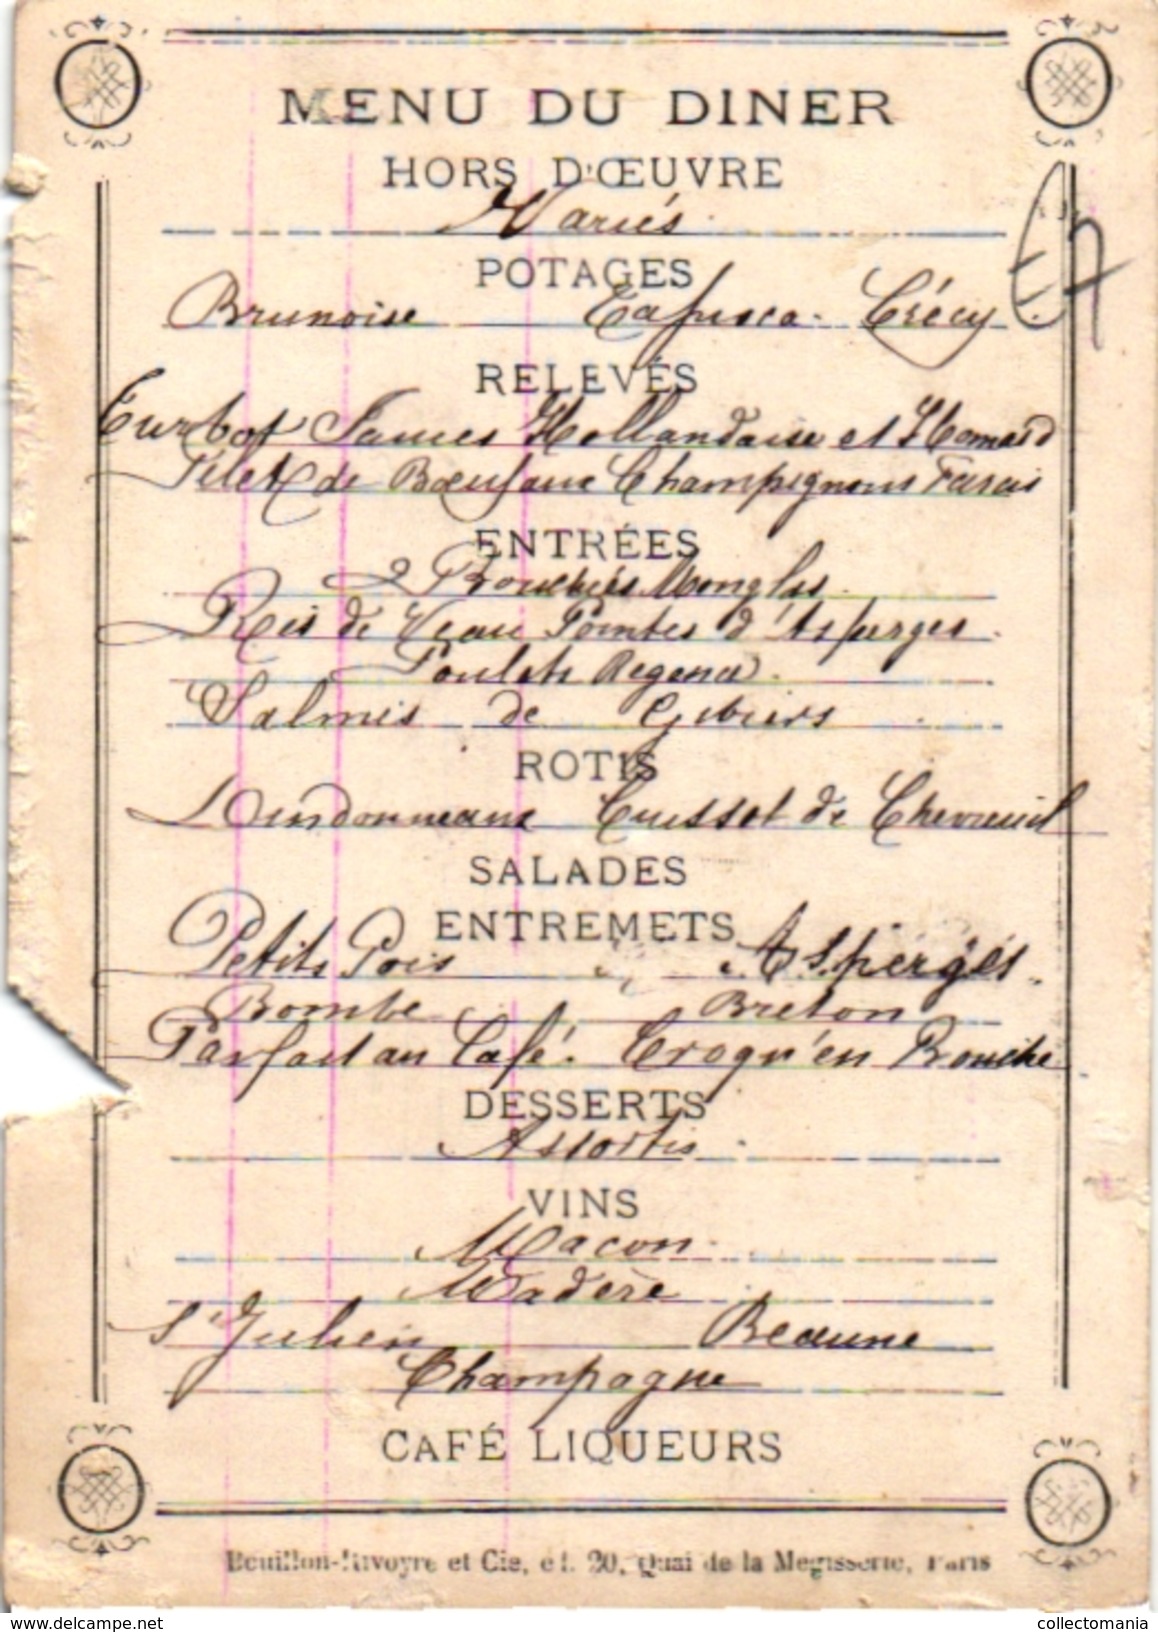 MENU DU DINER
HORS D'ŒUVRE
Variés.
POTAGES
Brunoise Tapioca. Crécy
RELEVÉS
Turbot Sauces Hollandaise et Homard
Filet de Bœuf aux Champignons Farcis
ENTRÉES
2 Bouchées Monglas.
Ris de Veau Pointes d'Asperges.
Poulets Regence.
Salmis de Gibiers
ROTIS
Dindonneaux Cuissot de Chevreuil
SALADES
ENTREMETS
Petits Pois Asperges.
Bombe Breton
Parfait au Café. Croqu'en Bouche
DESSERTS
Assortis.
VINS
Macon.
Madère
St Julien Beaune
Champagne
CAFÉ LIQUEURS
Bouillon-Rivoyre et Cie, et. 20, Quai de la Megisserie, Paris
collectomania